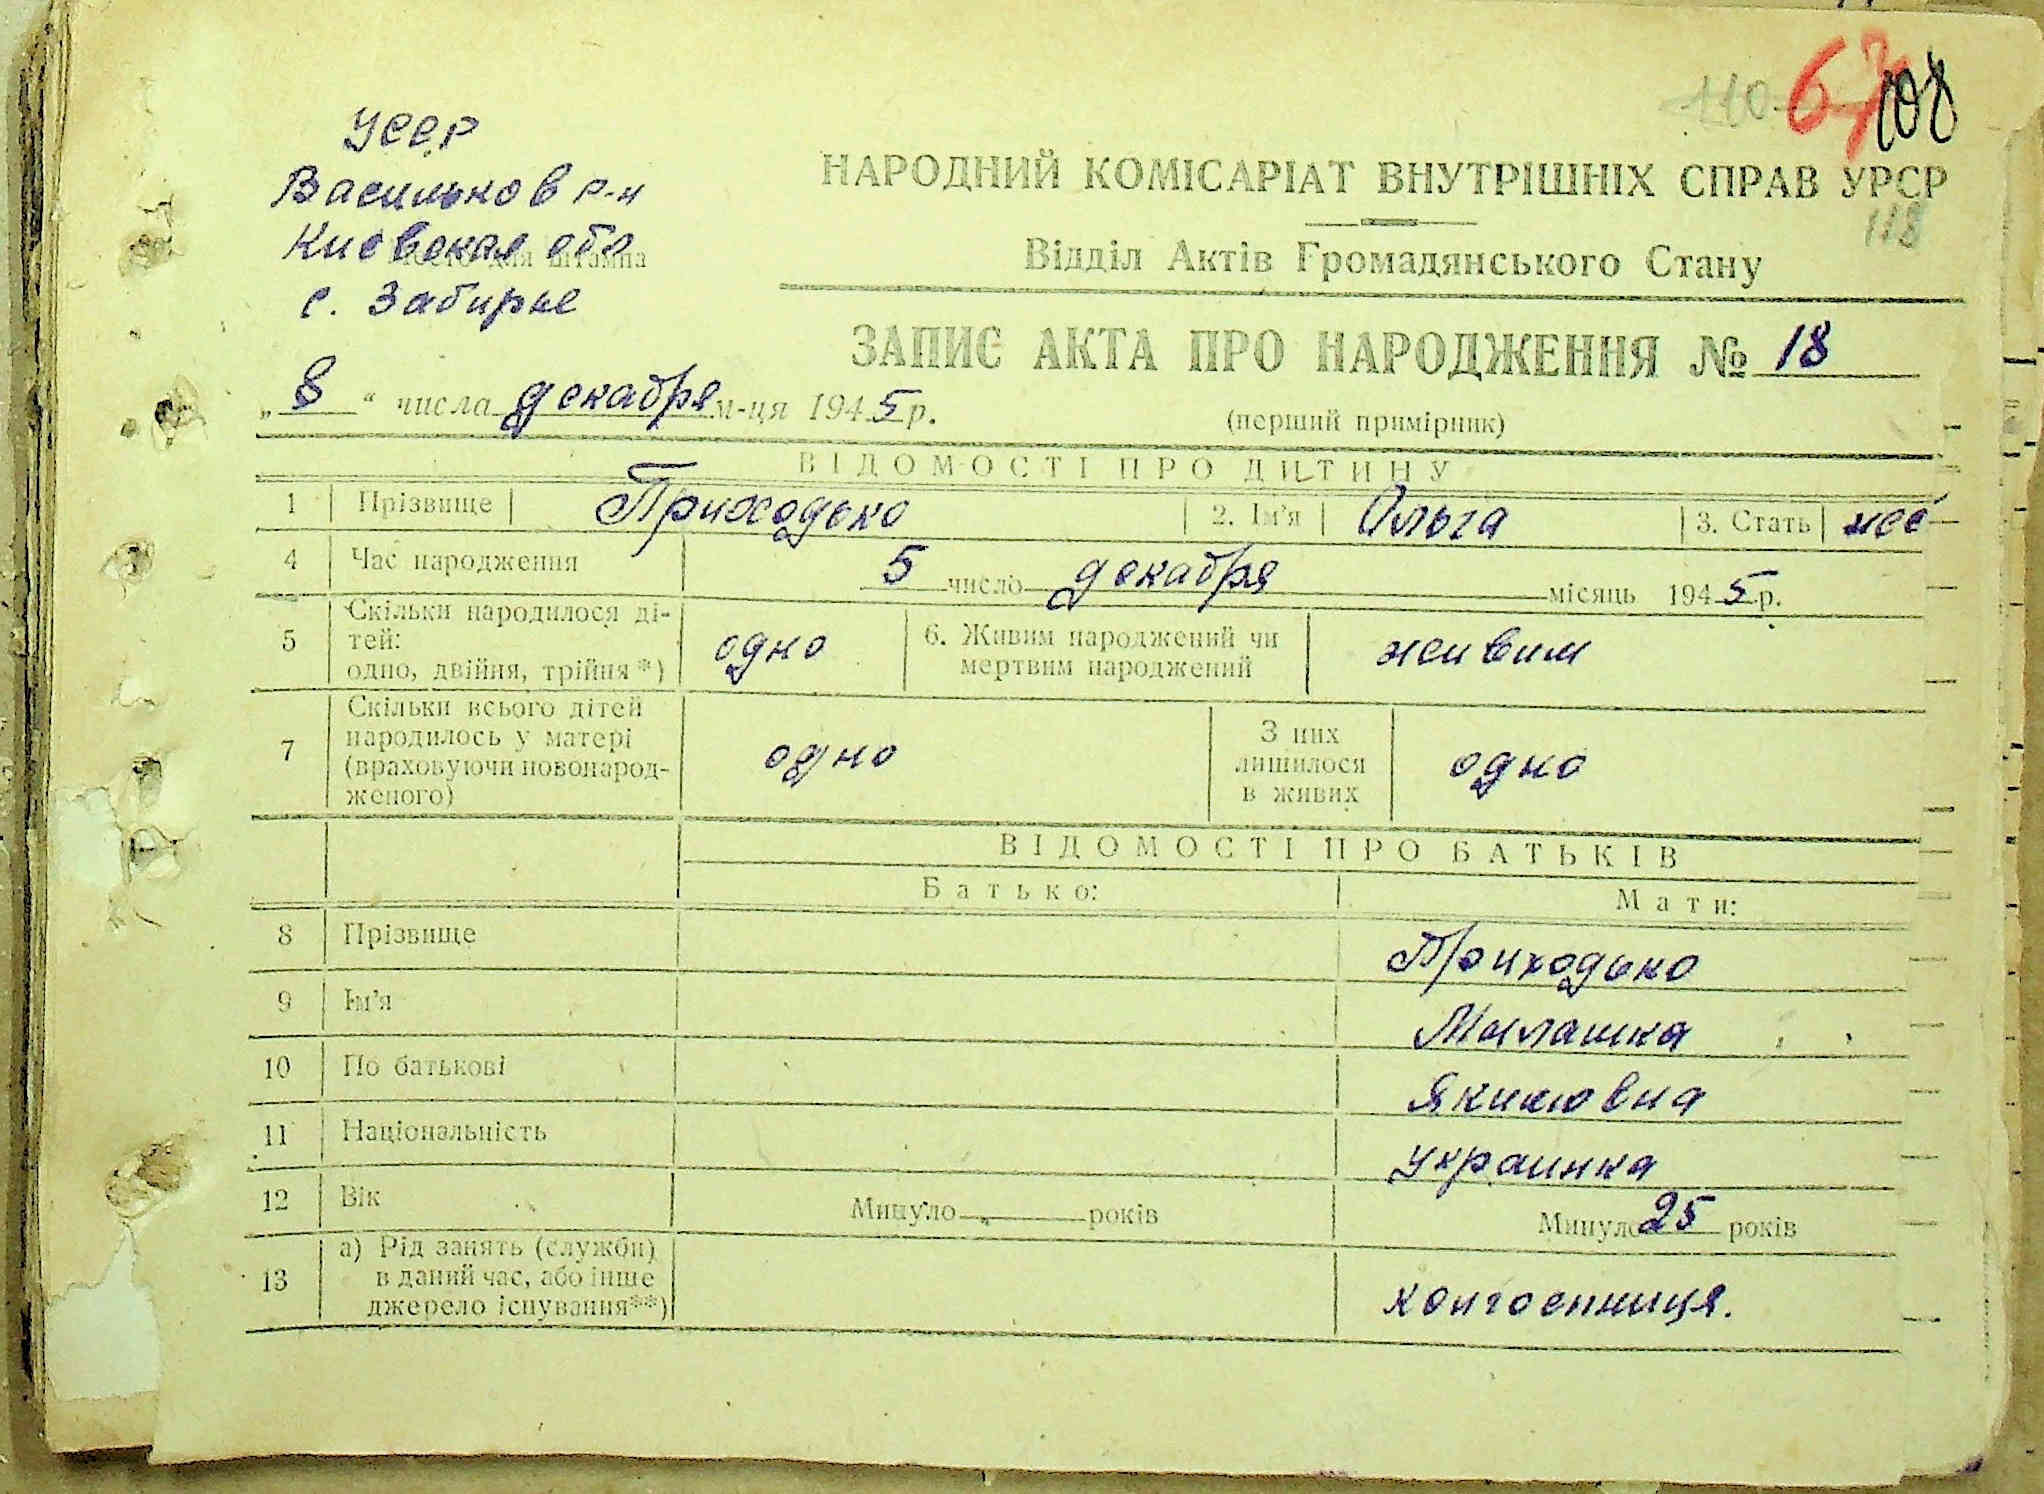 110 67 108
УССР
Васильков р-н
Киевская обл
с. Забирье
НАРОДНИЙ КОМІСАРІАТ ВНУТРІШНІХ СПРАВ УРСР
118
Відділ Актів Громадянського Стану
ЗАПИС АКТА ПРО НАРОДЖЕННЯ № 18
„8“ числа декабря м-ця 1945 р.
(перший примірник)
ВІДОМОСТІ ПРО ДИТИНУ
1 Прізвище Приходько 2. Ім'я Ольга 3. Стать жес
4 Час народження 5 число декабря місяць 1945 р.
5 Скільки народилося ді-
тей:
одно, двійня, трійня*) одно 6. Живим народжений чи
мертвим народжений живим
7 Скільки всього дітей
народилось у матері
(враховуючи новонарод-
женого) одно З них
лишилося
в живих одно
ВІДОМОСТІ ПРО БАТЬКІВ
Батько: Мати:
8 Прізвище Приходько
9 Ім'я Малашка
10 По батькові Якимовна
11 Національність украинка
12 Вік Минуло років Минуло 25 років
13 а) Рід занять (служби)
в даний час, або інше
джерело існування**) колгоспниця.